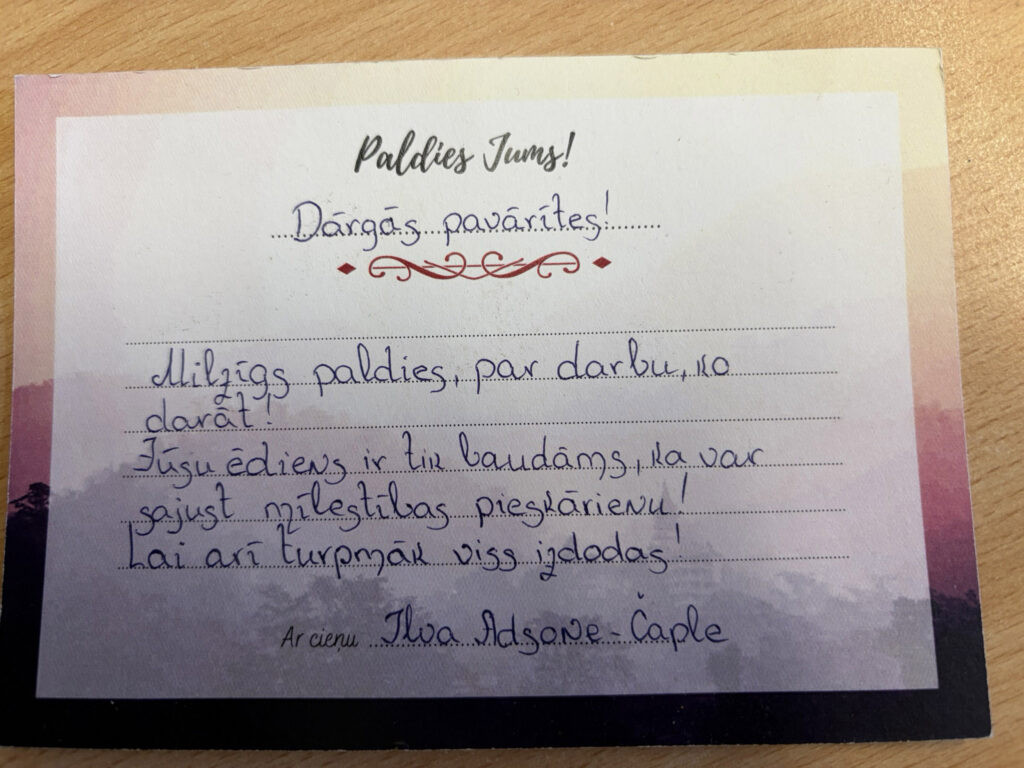 Paldies Jums!
Dārgās pavārītes!
Milzīgs paldies, par darbu, ko
darāt!
Jūsu ēdiens ir tik baudāms, ka var
sajust mīlestības pieskārienu!
Lai arī turpmāk viss izdodas!
Ar cieņu Ilva Adsone-Čaple